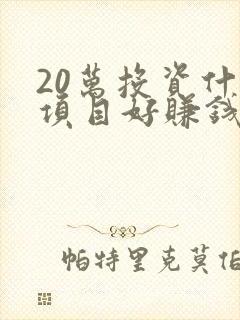 20萬投資什
項目好賺錢
帕特里克莫伯